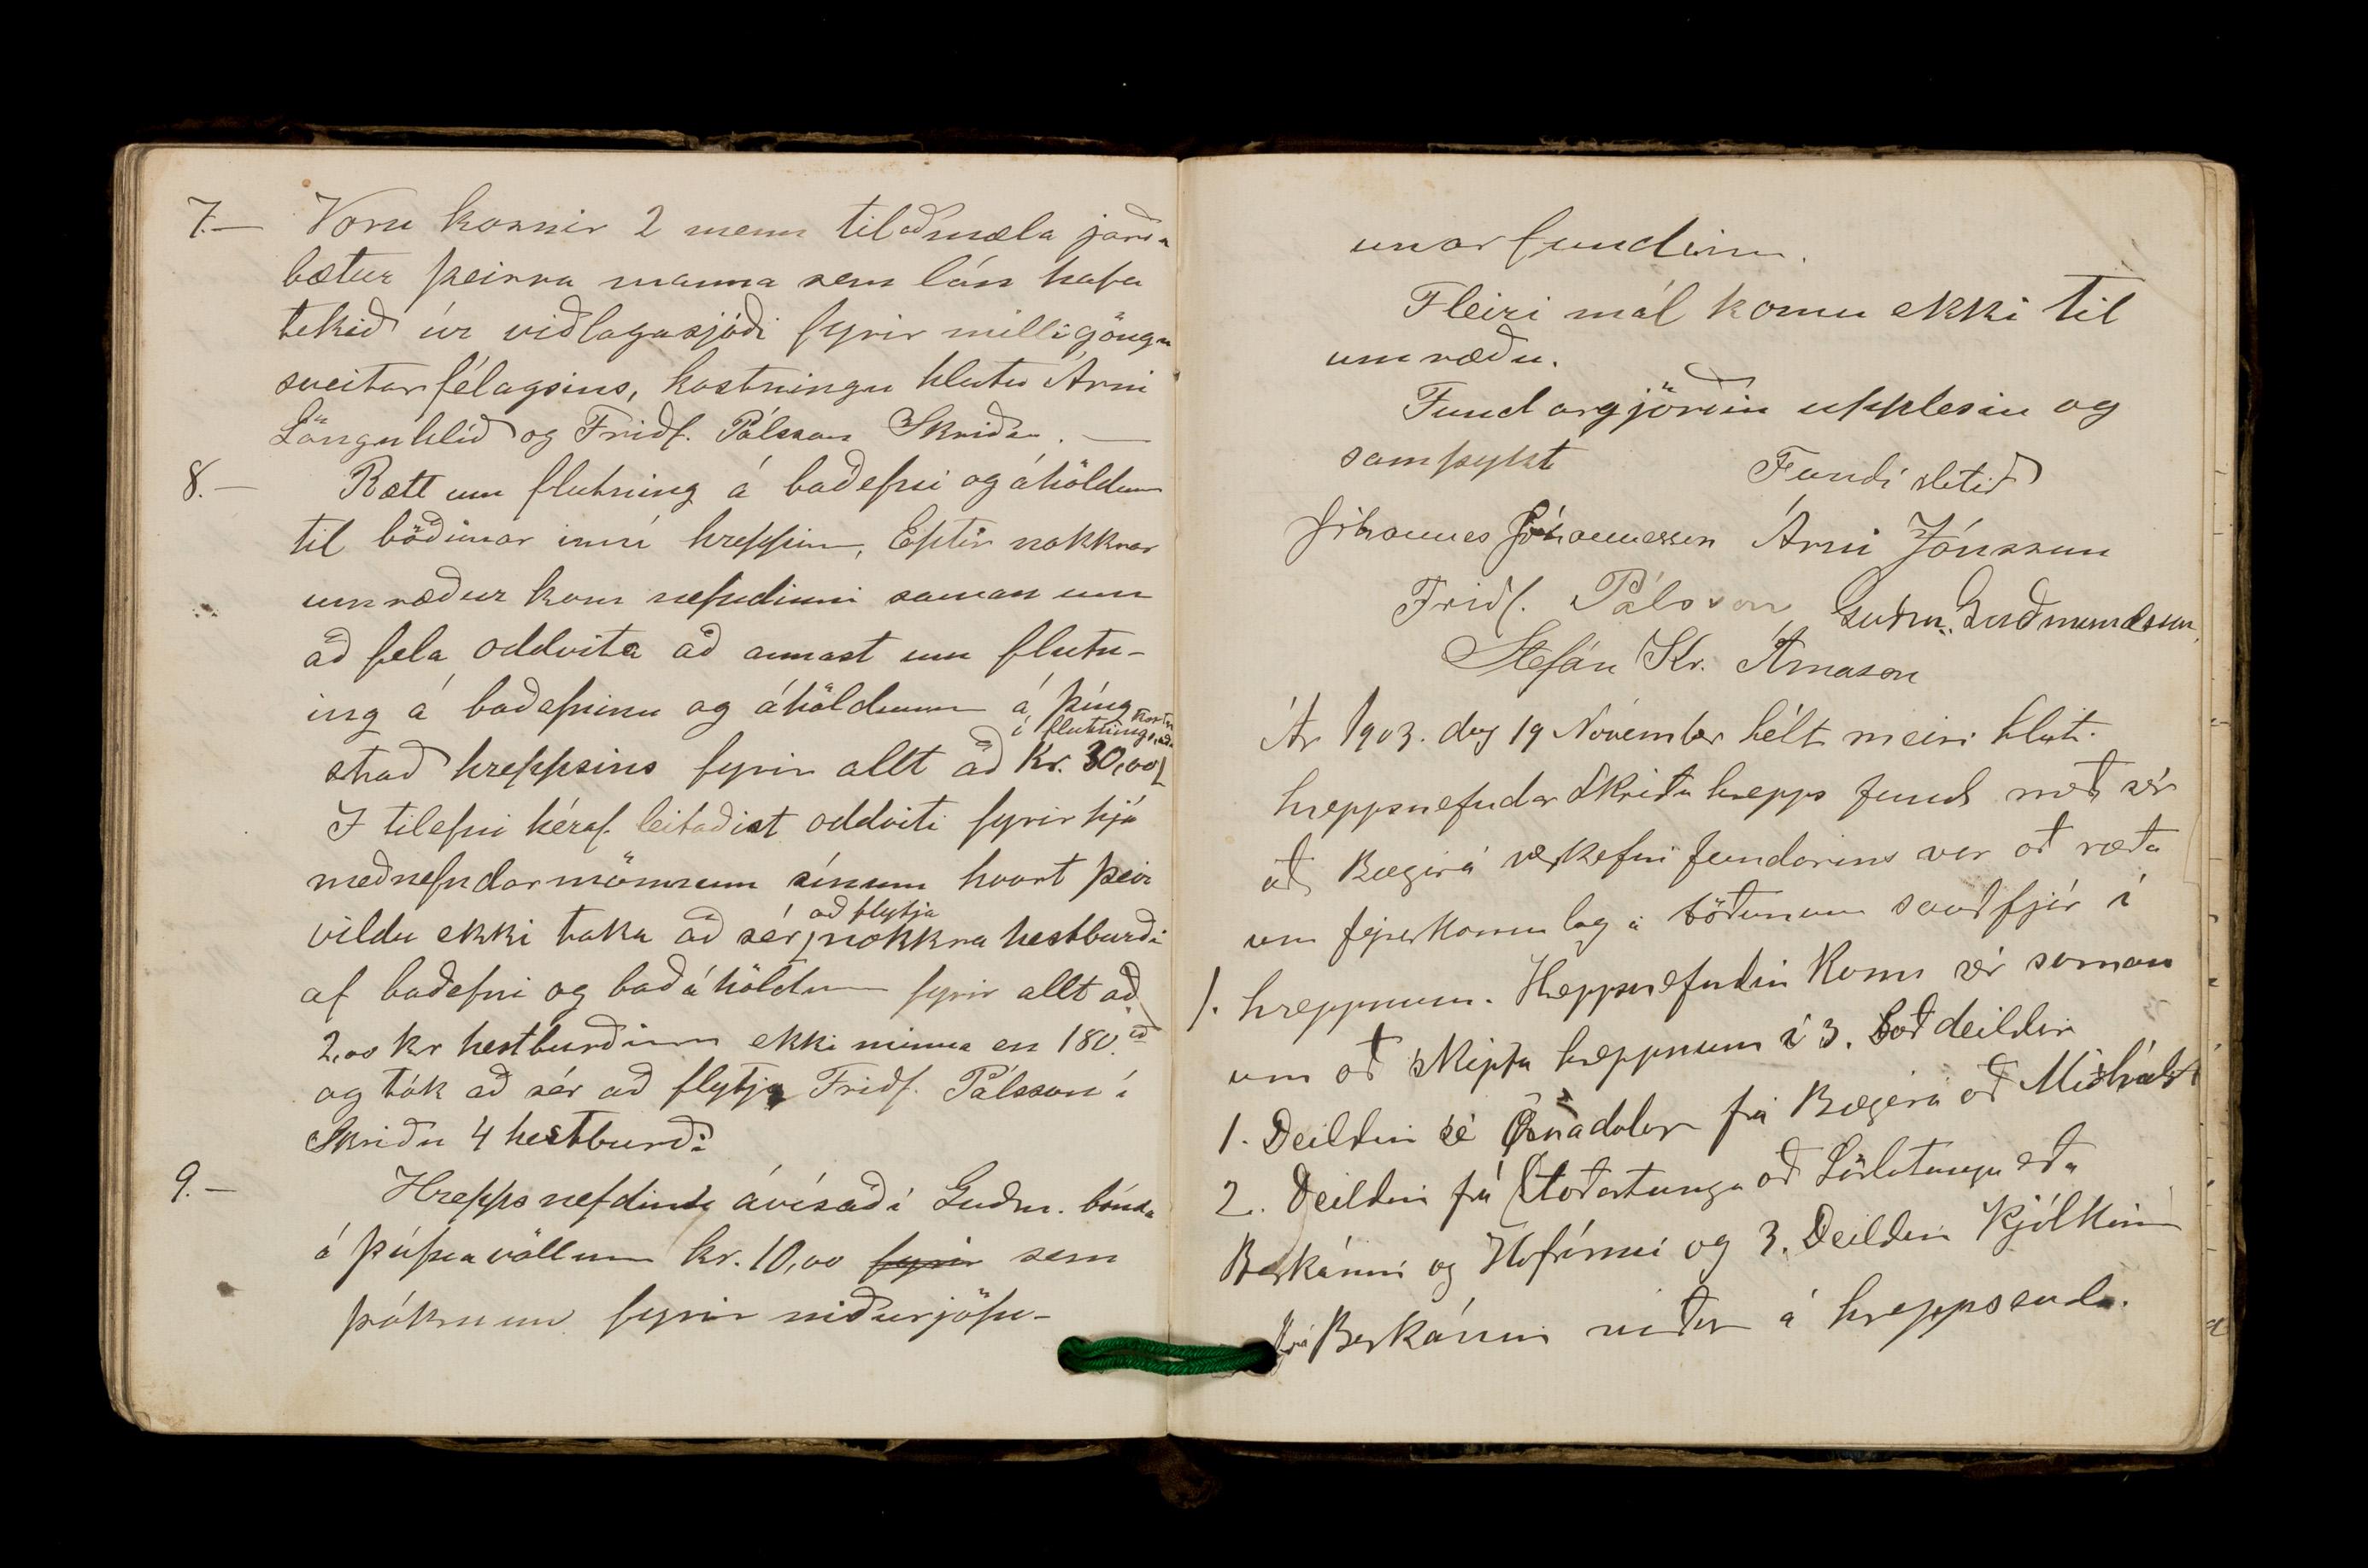 7.— Voru kosnir 2 menn til að mæla jarða
bætur þeirra manna sem lán hafa
tekið úr viðlagasjóði fyrir milligöngu
sveitarfélagsins, kostningu hlutu Árni
Lönguhlíð og Friðf. Pálsson Skriðu. —
8.— Rætt um flutning á baðefni og áhöldum
til böðunar inní hreppinn, Eptir nokkrar
umræður kom nefndinni saman um
að fela oddvita að annast um flutn-
ing á baðefninu og áhöldunum á þing
stað hreppsins fyrir allt að Kr. 30,00
í fluttings
I tilefni héraf leitaðist oddviti fyrir hjá
meðnefndarmönnum sínum hvort þeir
vildu ekki taka að sér að flytja nokkra hestburði
af baðefni og baðáhöldum fyrir allt að
2,00 kr hestburðinn ekki minna en 180 ℔
og tók að sér að flytja Friðf. Pálsson í
Skriðu 4 hestburði
9.— Hreppsnefdin ávísaði Guðm. bónda
á Þúfnavöllum kr. 10,00 fyrir sem
þóknun fyrir niðurjöfn-
unarfundinn.
Fleiri mál komu ekki til
umræðu.
Fundargjörðin upplesin og
samþykt Fundi slitið
Jóhannes Jóhannesson Árni Jónsson
Friðf. Pálsson Guðm. Guðmundsson
Stefán Kr. Árnason
Ár 1903. dag 19 Nóvember hélt meiri hluti
hreppsnefndar Skriðuhrepps fund með sér
að Bægisá verkefni fundarins var að ræða
um fyrirkomulag á böðunum sauðfjár í
1. hreppnum. Hreppsnefndin Kom sér saman
um að skipta hreppnum í 3. baðdeildir
1. Deildin sé Öxnadalur frá Bægisá að Miðhálst
2. Deildin frá Staðartungu að Sörlatungu eða
Barkánni og Hofánni og 3. Deildin Kjólkinn
frá Barkánni niður á hreppsenda.